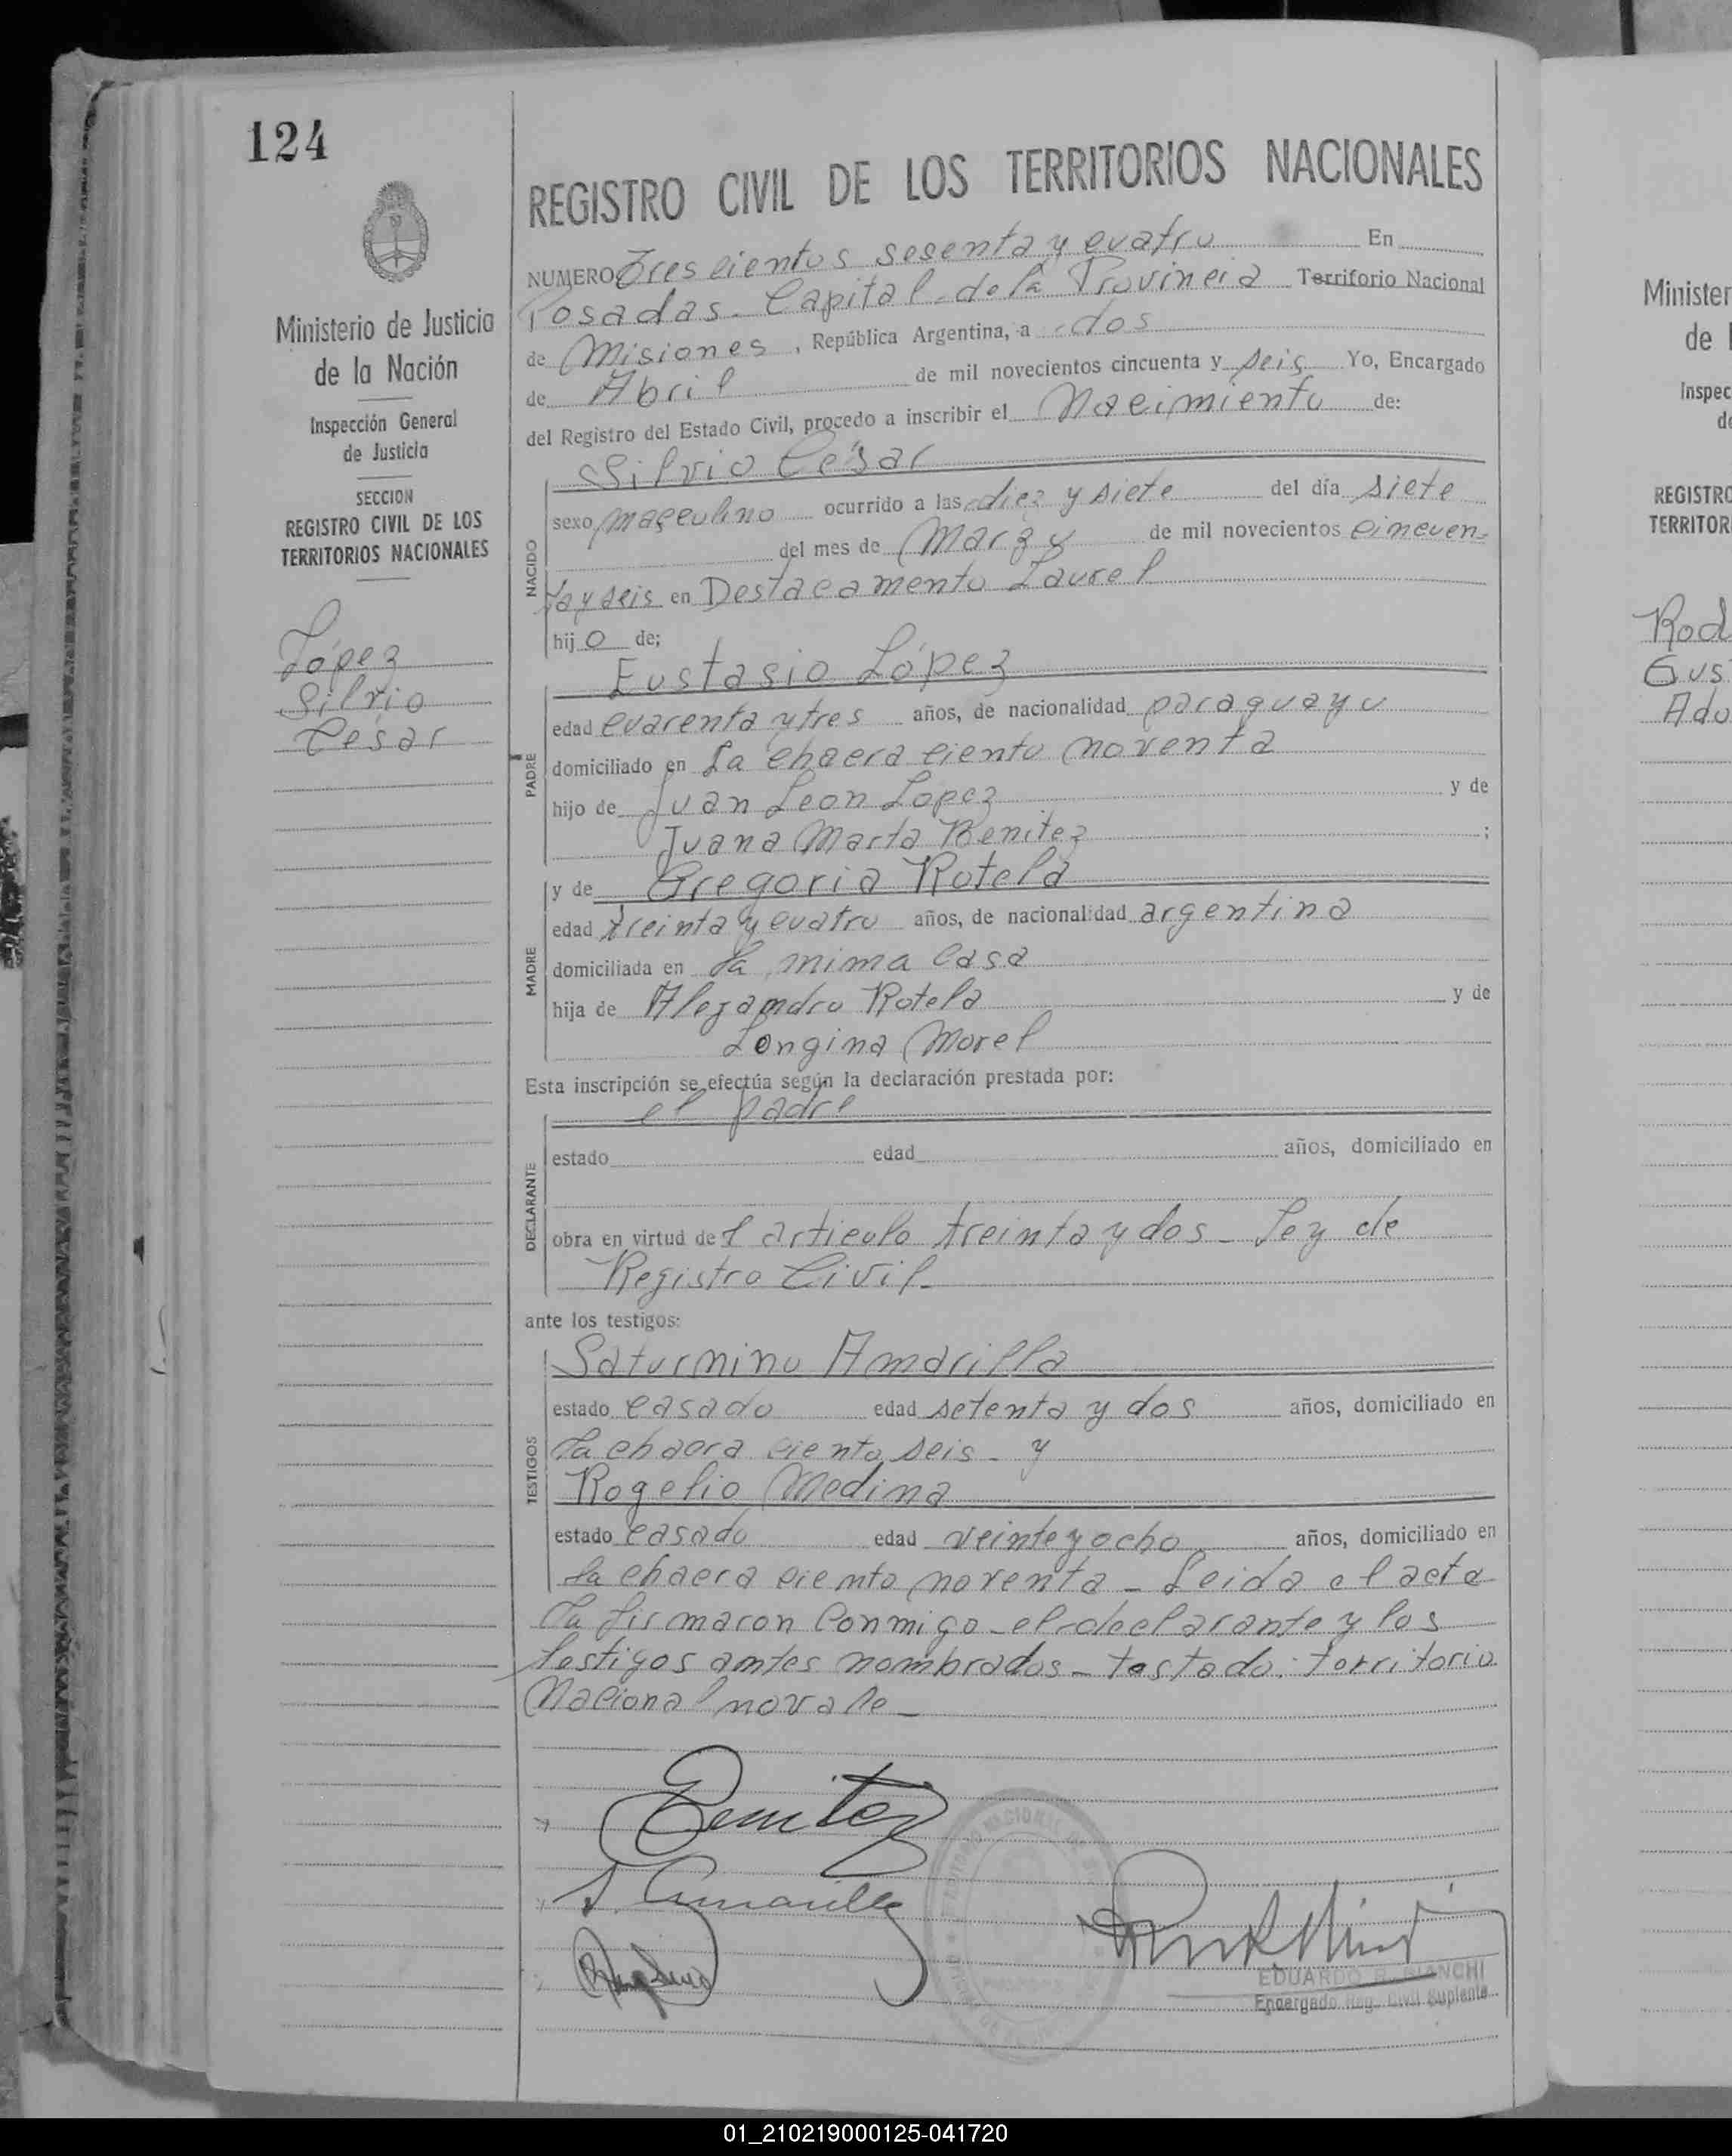 124
Ministerio de Justicia
de la Nación
Inspección General
de Justicia
SECCION
REGISTRO CIVIL DE LOS
TERRITORIOS NACIONALES
López
Silvio
César
REGISTRO CIVIL DE LOS TERRITORIOS NACIONALES
NUMERO Trescientos sesenta y cuatro En
Posadas. Capital de la Provincia Territorio Nacional
de Misiones, República Argentina, a dos
de Abril de mil novecientos cincuenta y seis Yo, Encargado
del Registro del Estado Civil, procedo a inscribir el Nacimiento de:
Silvio César
NACIDO
sexo masculino ocurrido a las diez y siete del día siete
del mes de Marzo de mil novecientos cincuen-
ta y seis en Destacamento Laurel
hijo de;
Eustasio López
PADRE
edad cuarenta y tres años, de nacionalidad paraguayo
domiciliado en la chacra ciento noventa
hijo de Juan Leon Lopez y de
Juana Marta Benitez ;
MADRE
y de Gregoria Rotela
edad treinta y cuatro años, de nacionalidad argentina
domiciliada en la mima casa
hija de Alejandro Rotela y de
Longina Morel
Esta inscripción se efectúa según la declaración prestada por:
el padre
DECLARANTE
estado edad años, domiciliado en
obra en virtud del articulo treinta y dos - Ley de
Registro Civil -
ante los testigos:
Saturnino Amarilla
TESTIGOS
estado casado edad setenta y dos años, domiciliado en
la chacra ciento seis - y
Rogelio Medina
estado casado edad veinte y ocho años, domiciliado en
la chacra ciento noventa - Leida el acta
la firmaron conmigo el declarante y los
testigos antes nombrados - testado: territorio
Nacional no vale -
Benitez
S. Amarilla
EDUARDO R. BIANCHI
Encargado Reg. Civil Suplente
Minister
de
Inspec
de
REGISTRO
TERRITOR
Rod
Gus
Ado
01_210219000125-041720